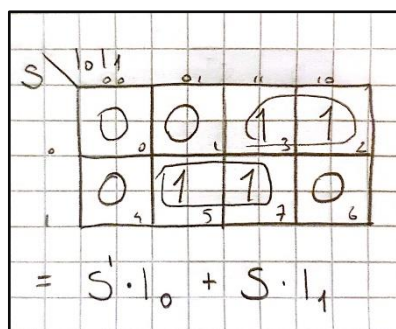 S I₀ I₁
00 01 11 10
0 0 0 0 1 1 3 1 2
1 0 4 1 5 1 7 0 6
= S'·I₀ + S·I₁